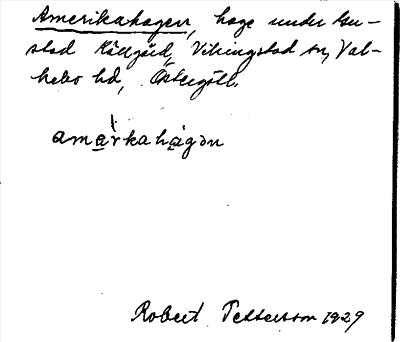 Amerikahagen, hage under Gu-
stad Källgård, Vikingstad sn, Val-
kebo hd, Östergötl.
amærkahagən
Robert Pettersson 1929